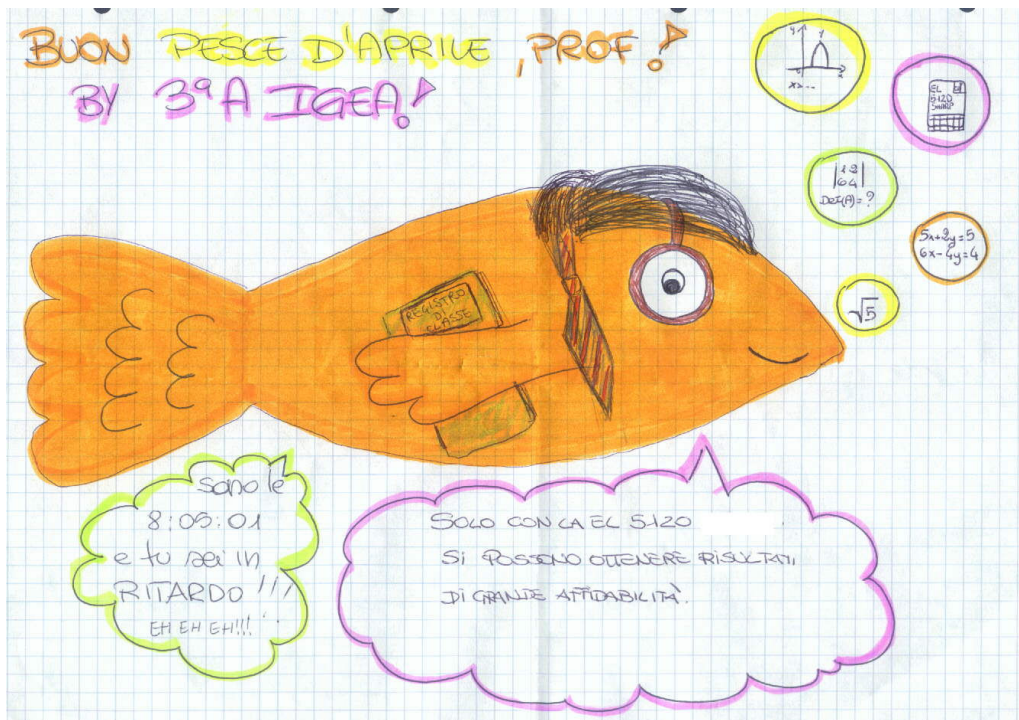 BUON PESCE D'APRILE, PROF!
BY 3ªA IGEA!
y
x
x>...
EL
5120
SHARP
|1 2|
|6 4|
Det(A)=?
5x+2y=5
6x-4y=4
√5
REGISTRO
DI
CLASSE
Sono le
8:05:01
e tu sei in
RITARDO !!!
EH EH EH!!!
SOLO CON LA EL 5120
SI POSSONO OTTENERE RISULTATI
DI GRANDE AFFIDABILITÀ.